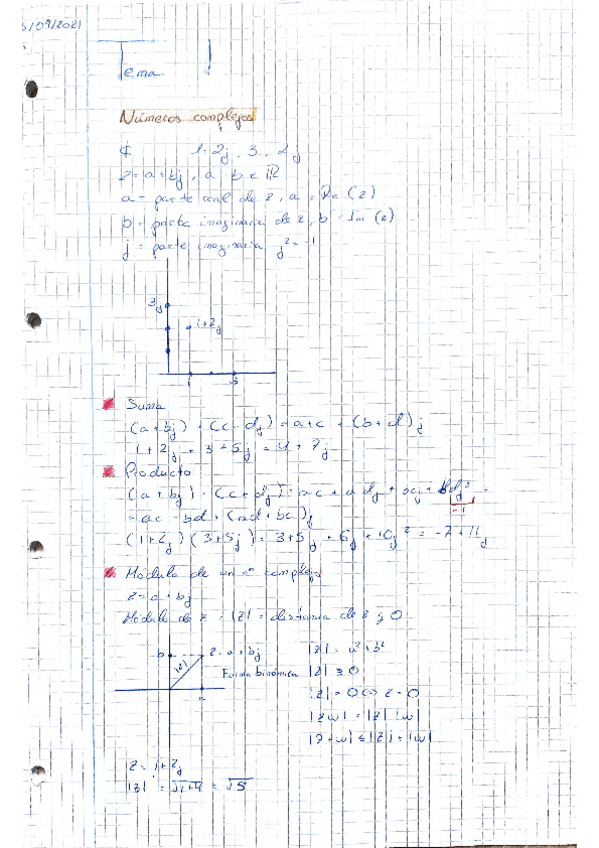 /09/2021
Tema 1
Números complejos
ℂ 1+2j, 3, 2j
z = a+bj, a b ∈ ℝ
a = parte real de z, a = Re (z)
b = parte imaginaria de z, b = Im (z)
j = parte imaginaria j² = -1
3j
1+2j
1 3
Suma
(a+bj) + (c+dj) = a+c + (b+d)j
1+2j + 3+5j = 4+7j
Producto
(a+bj) · (c+dj) = ac + adj + bcj + bdj² =
-1
= ac - bd + (ad+bc)j
(1+2j)(3+5j) = 3+5j + 6j + 10j² = -7+11j
Módulo de un nº complejo
z = a+bj
Módulo de z = |z| = distancia de z y 0
b z = a+bj
|z|
Forma binómica
a
|z| = a²+b²
|z| ≥ 0
|z| = 0 ⇔ z = 0
|zw| = |z| |w|
|z+w| ≤ |z| + |w|
z = 1+2j
|z| = √1+4 = √5